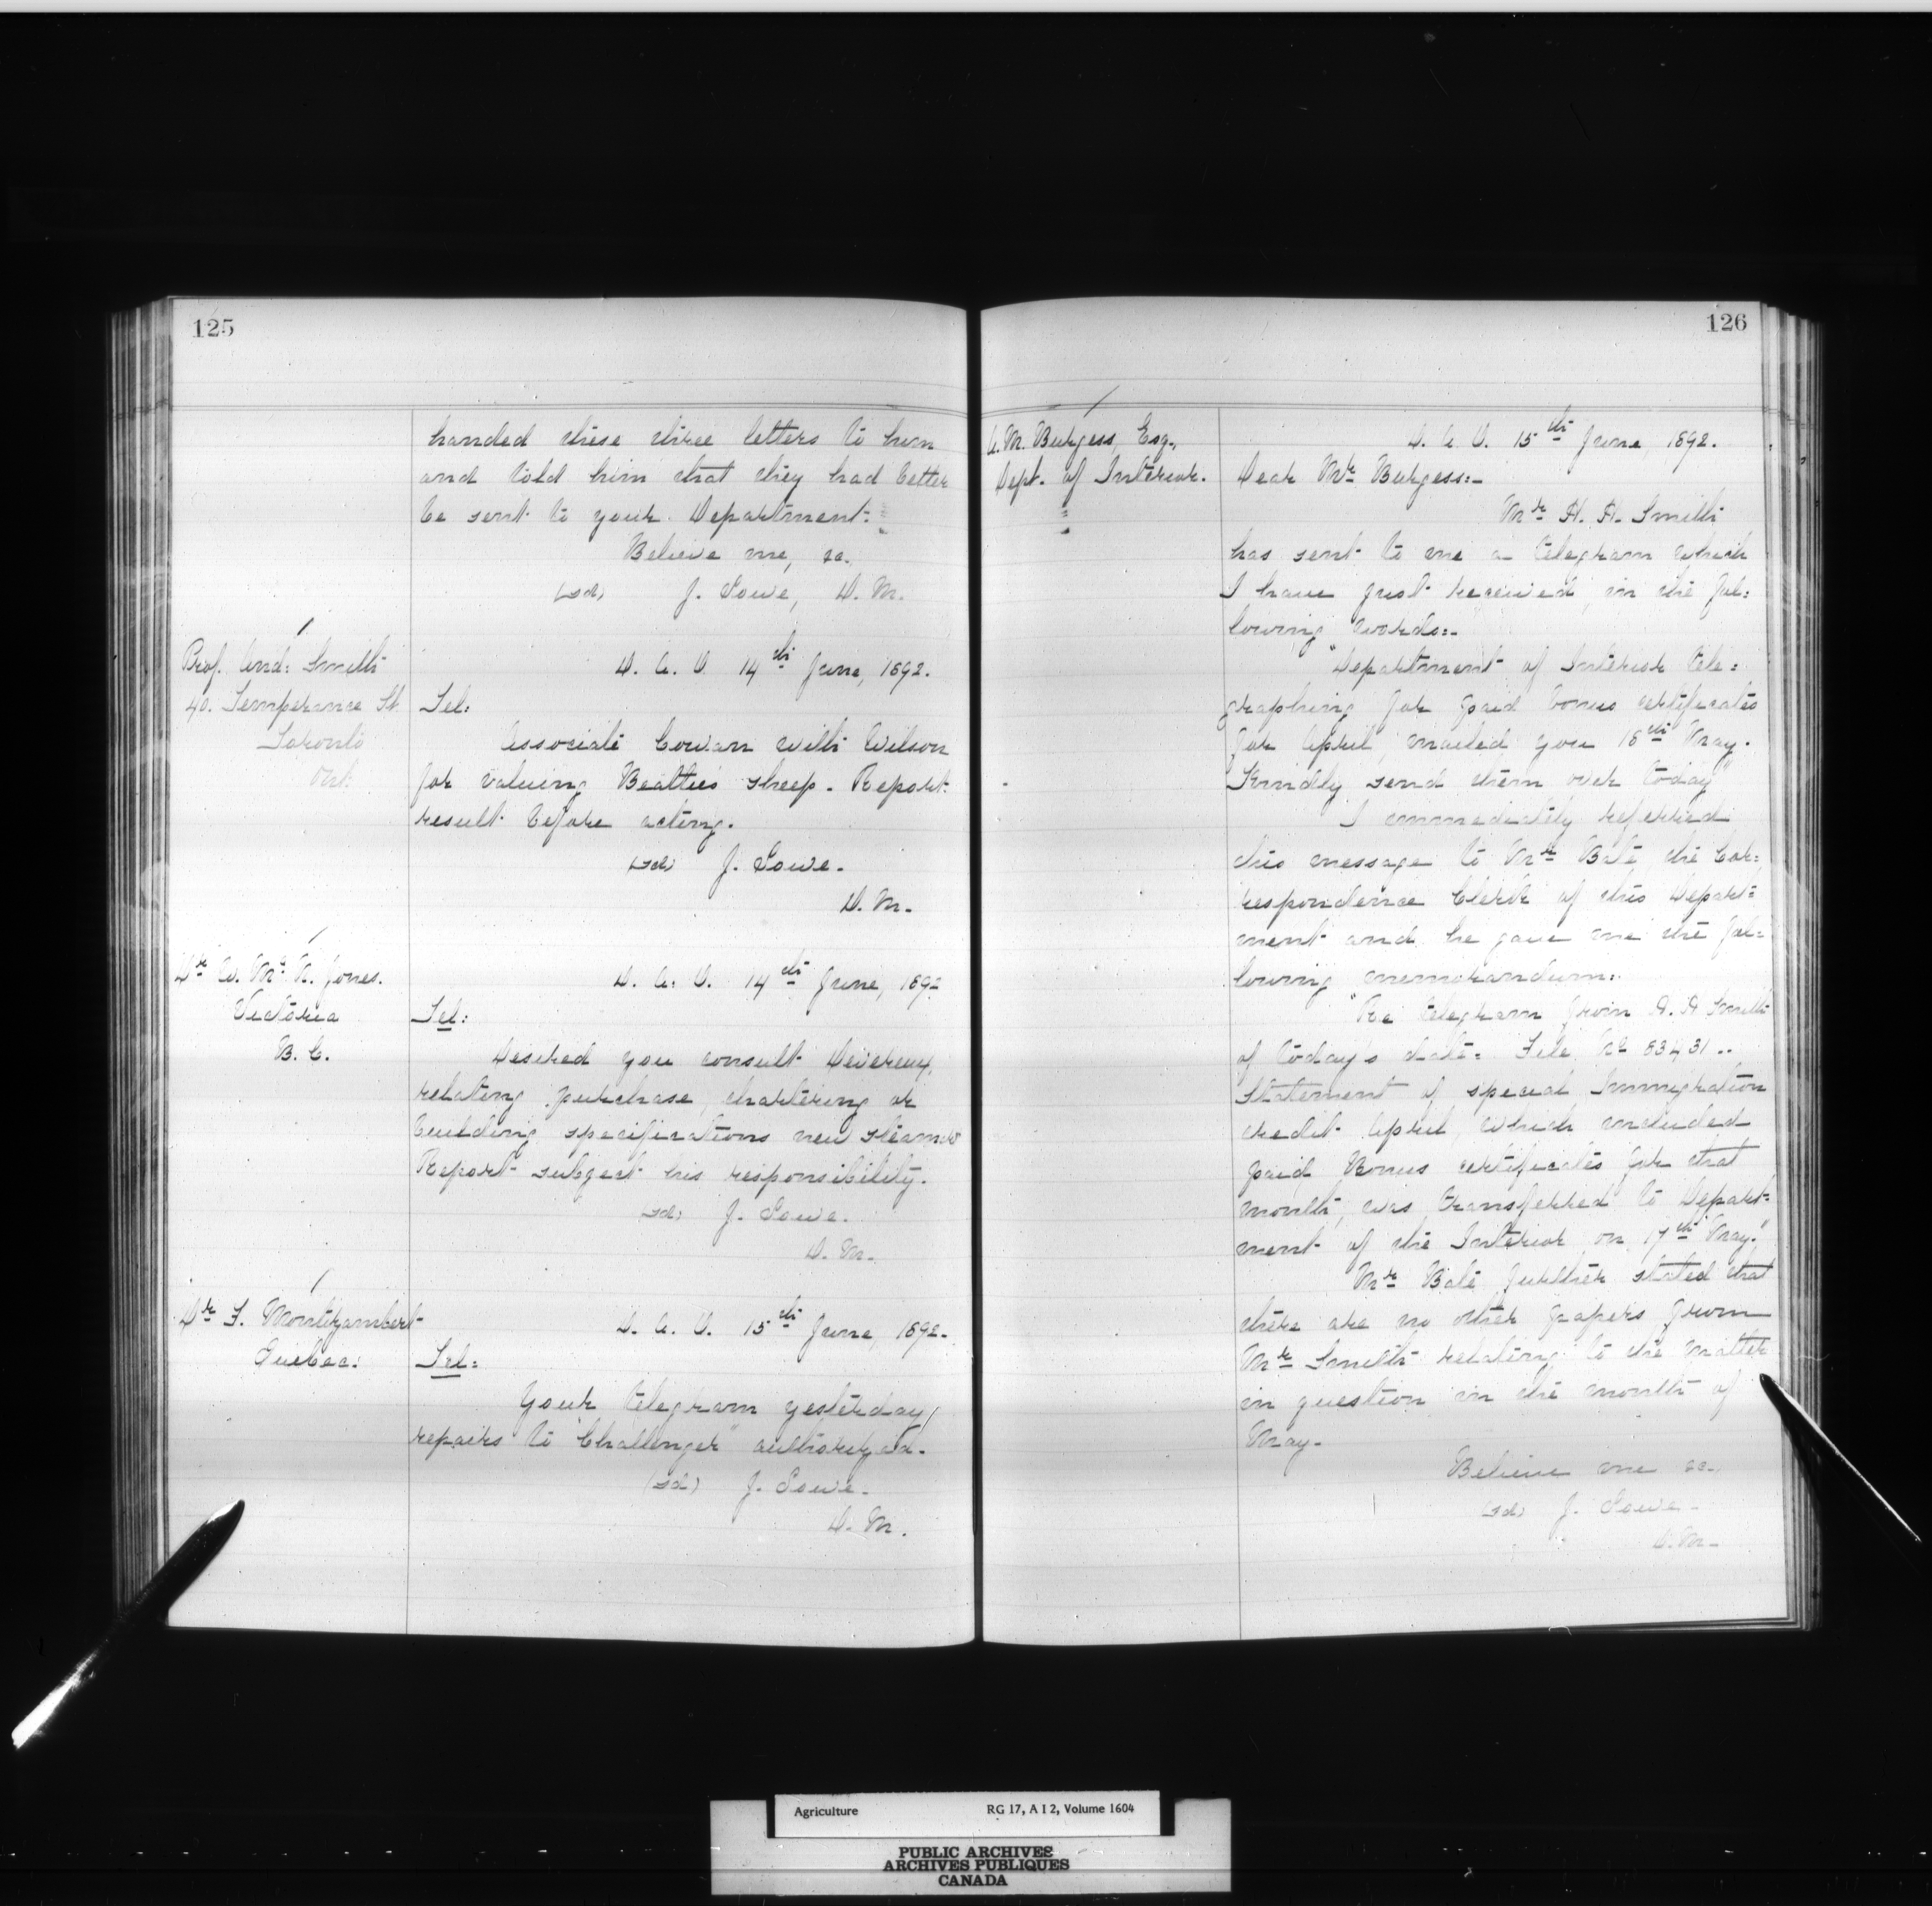 125
handed these three letters to him
and told him that they had better
be sent to your Department.
Believe me, &c.
(sd) J. Lowe, D. M.
Prof. And: Smith
40. Temperance St.
Toronto
Ont.
D. A. O. 14th June, 1892.
Tel:
Associate Cowan with Wilson
for valuing Beattie's sheep. Report
result before acting.
(sd) J. Lowe.
D. M.
Dr W. Mc N. Jones.
Victoria
B. C.
D. A. O. 14th June, 1892
Tel:
Desired you consult Devereux,
relating purchase, chartering or
building specifications new steamer
Report subject his responsibility.
(sd) J. Lowe.
D. M.
Dr F. Montizambert
Quebec:
D. A. O. 15th June, 1892.
Tel:
Your telegram yesterday,
repairs to "Challenger" authorized.
(sd) J. Lowe.
D. M.
126
A. M. Burgess, Esq.,
Dept. of Interior.
D. A. O. 15th June, 1892.
Dear Mr Burgess:-
Mr H. H. Smith
has sent to me a telegram which
I have just received, in the fol=
lowing words:-
"Department of Interior tele=
graphing for paid bonus certificates
for April, mailed you 18th May.
Kindly send them over today"
I immediately referred
this message to Mr Bate the Cor=
respondence Clerk of this Depart=
ment and he gave me the fol=
lowing memorandum:
"Re telegram from H. H Smith
of today's date: File No 83431..
Statement of special Immigration
credit April, which included
paid Bonus certificates for that
month, was transferred to Depart=
ment of the Interior on 17th May."
Mr Bate further stated that
there are no other papers from
Mr Smith relating to the matter
in question in the month of
May.
Believe me &c.
(sd) J. Lowe.
D. M.
Agriculture RG 17, A I 2, Volume 1604
PUBLIC ARCHIVES
ARCHIVES PUBLIQUES
CANADA